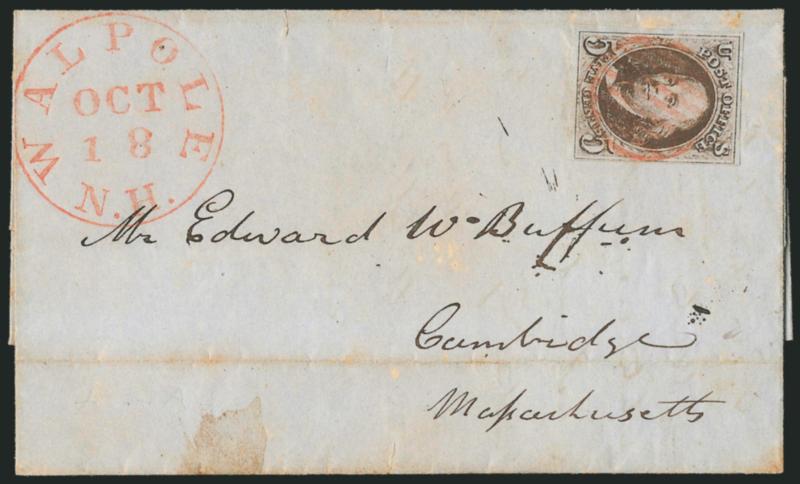 WALPOLE
OCT
18
N.H.
U S
POST OFFICE
5 5
Mr Edward W. Buffum
Cambridge
Massachusetts